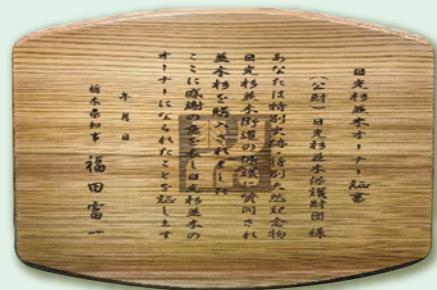 日光杉並木オーナー証書
(公財)日光杉並木保護財団 様
あなたは特別史跡・特別天然記念物
日光杉並木街道の保護に賛同され
並木杉を購入されました
ここに感謝の意を表し日光杉並木の
オーナーになられたことを証します
年 月 日
栃木県知事 福田富一